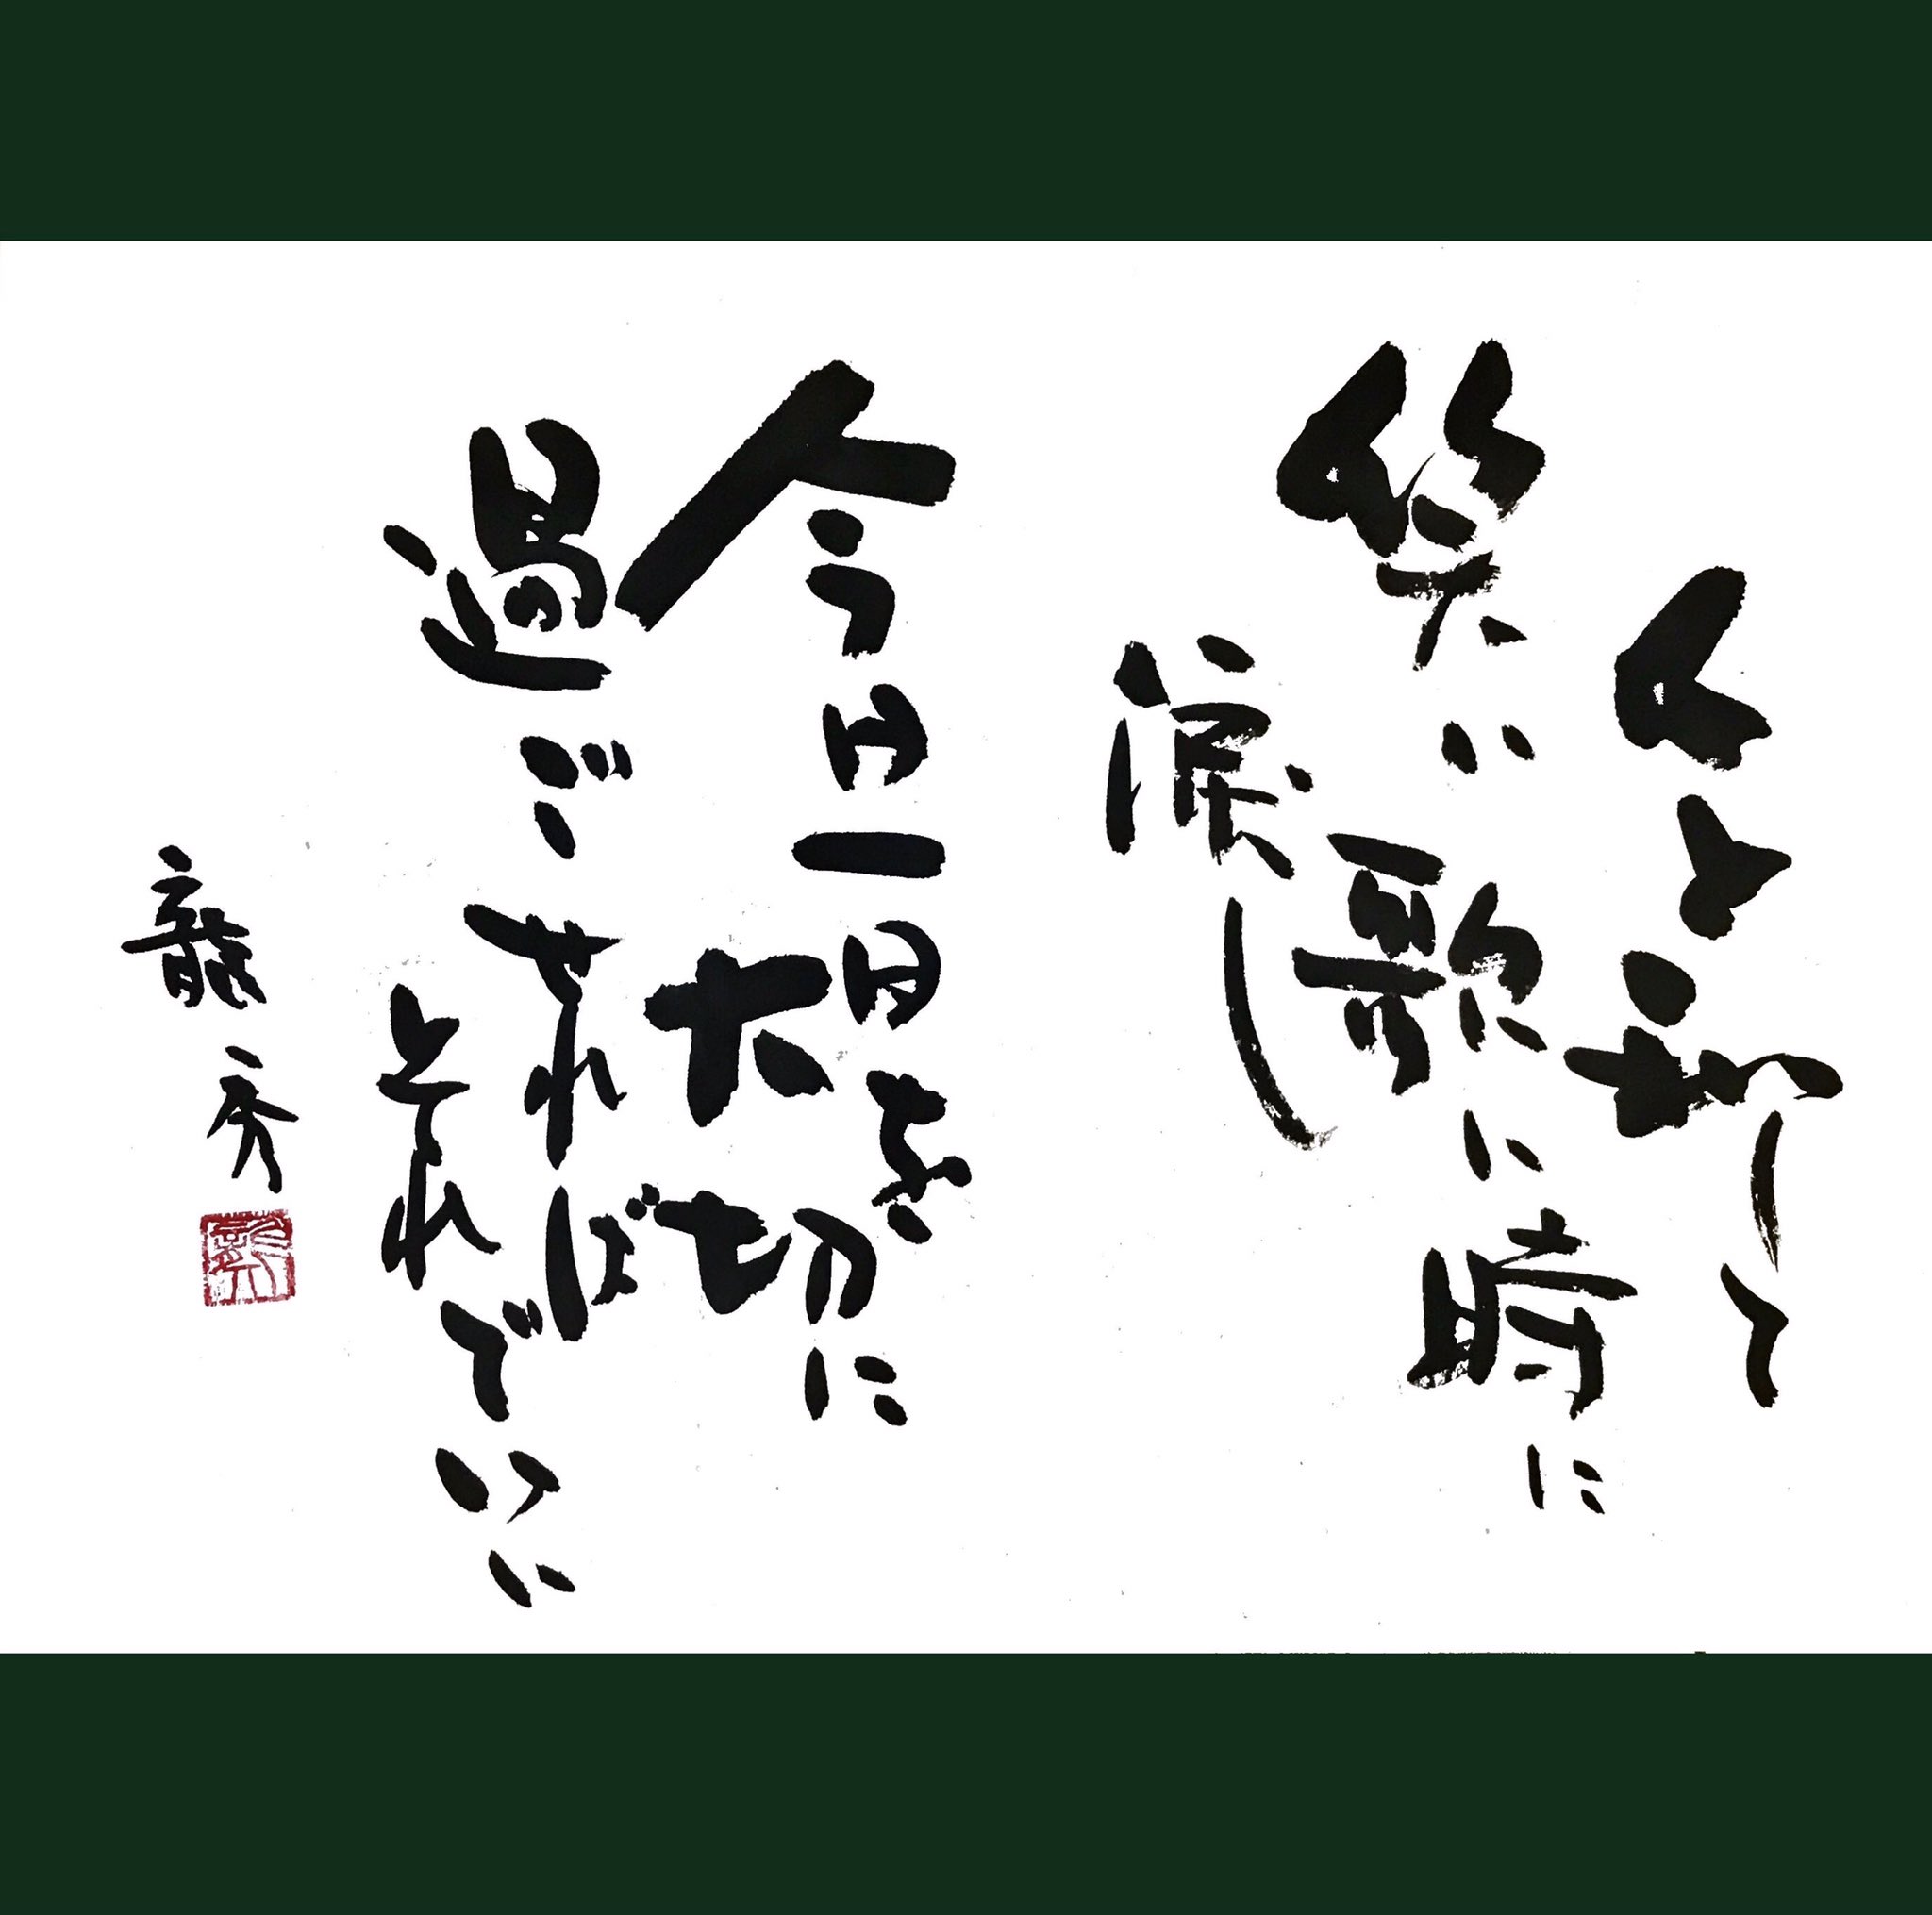 人と和して
笑い歌い時に
涙し
今日一日を
大切に
過ごせれば
それでいい
龍秀